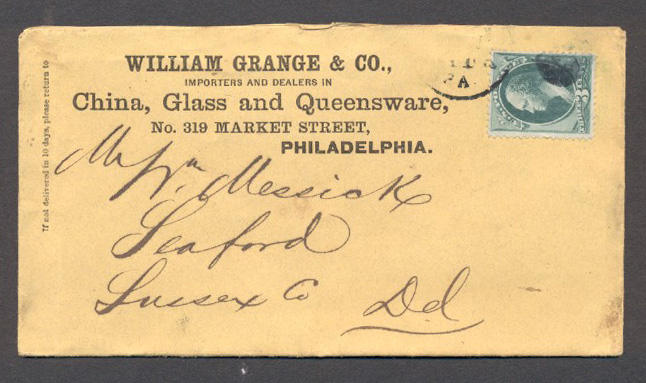 If not delivered in 10 days, please return to
WILLIAM GRANGE & CO.,
IMPORTERS AND DEALERS IN
China, Glass and Queensware,
No. 319 MARKET STREET,
PHILADELPHIA.
PA.
Mr Wm Messick
Seaford
Sussex Co Del